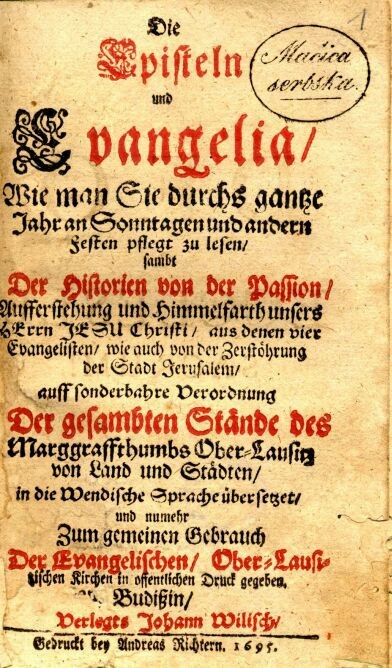 Die
Episteln
und
Evangelia/
Wie man Sie durchs gantze
Jahr an Sonntagen und andern
Festen pflegt zu lesen/
sambt
Der Historien von der Passion/
Aufferstehung und Himmelfarth unsers
HErrn JESU Christi/ aus denen vier
Evangelisten/ wie auch von der Zerstöhrung
der Stadt Jerusalem/
auff sonderbahre Verordnung
Der gesambten Stände des
Marggraffthumbs Ober-Lausitz
von Land und Städten/
in die Wendische Sprache übersetzet/
und numehr
Zum gemeinen Gebrauch
Der Evangelischen/ Ober-Lausi-
tzischen Kirchen in offentlichen Druck gegeben.
Budißin/
Verlegts Johann Wilisch/
Gedruckt bey Andreas Richtern. 1695.
Maćica
serbska.
1